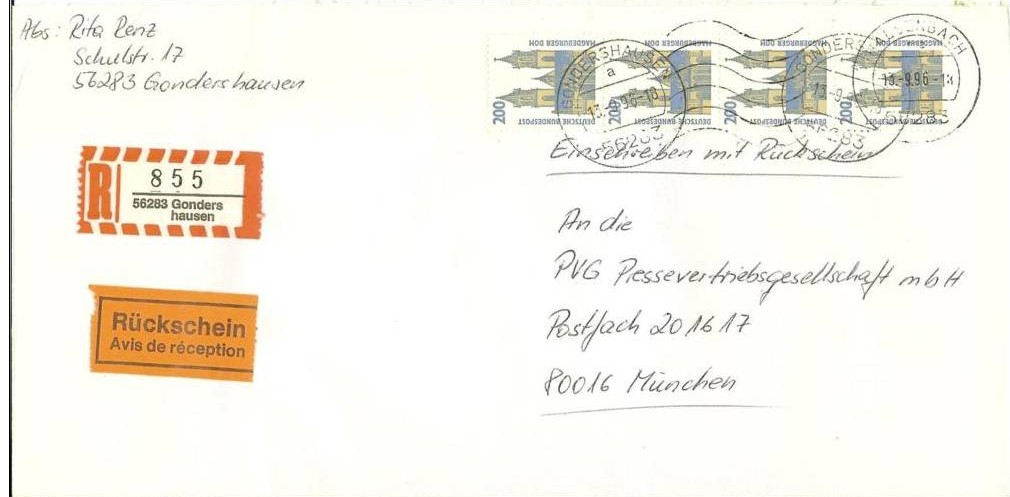 Abs: Rita Renz
Schulstr. 17
56283 Gondershausen
MAGDEBURGER DOM
200
DEUTSCHE BUNDESPOST
MAGDEBURGER DOM
200
DEUTSCHE BUNDESPOST
MAGDEBURGER DOM
200
DEUTSCHE BUNDESPOST
MAGDEBURGER DOM
200
DEUTSCHE BUNDESPOST
GONDERSHAUSEN
a
13.-9.96-18
56283
13.-9.96-18
56283
Einschreiben mit Rückschein
R
855
56283 Gonders
hausen
An die
PVG Pressevertriebsgesellschaft mbH
Postfach 201617
80016 München
Rückschein
Avis de réception